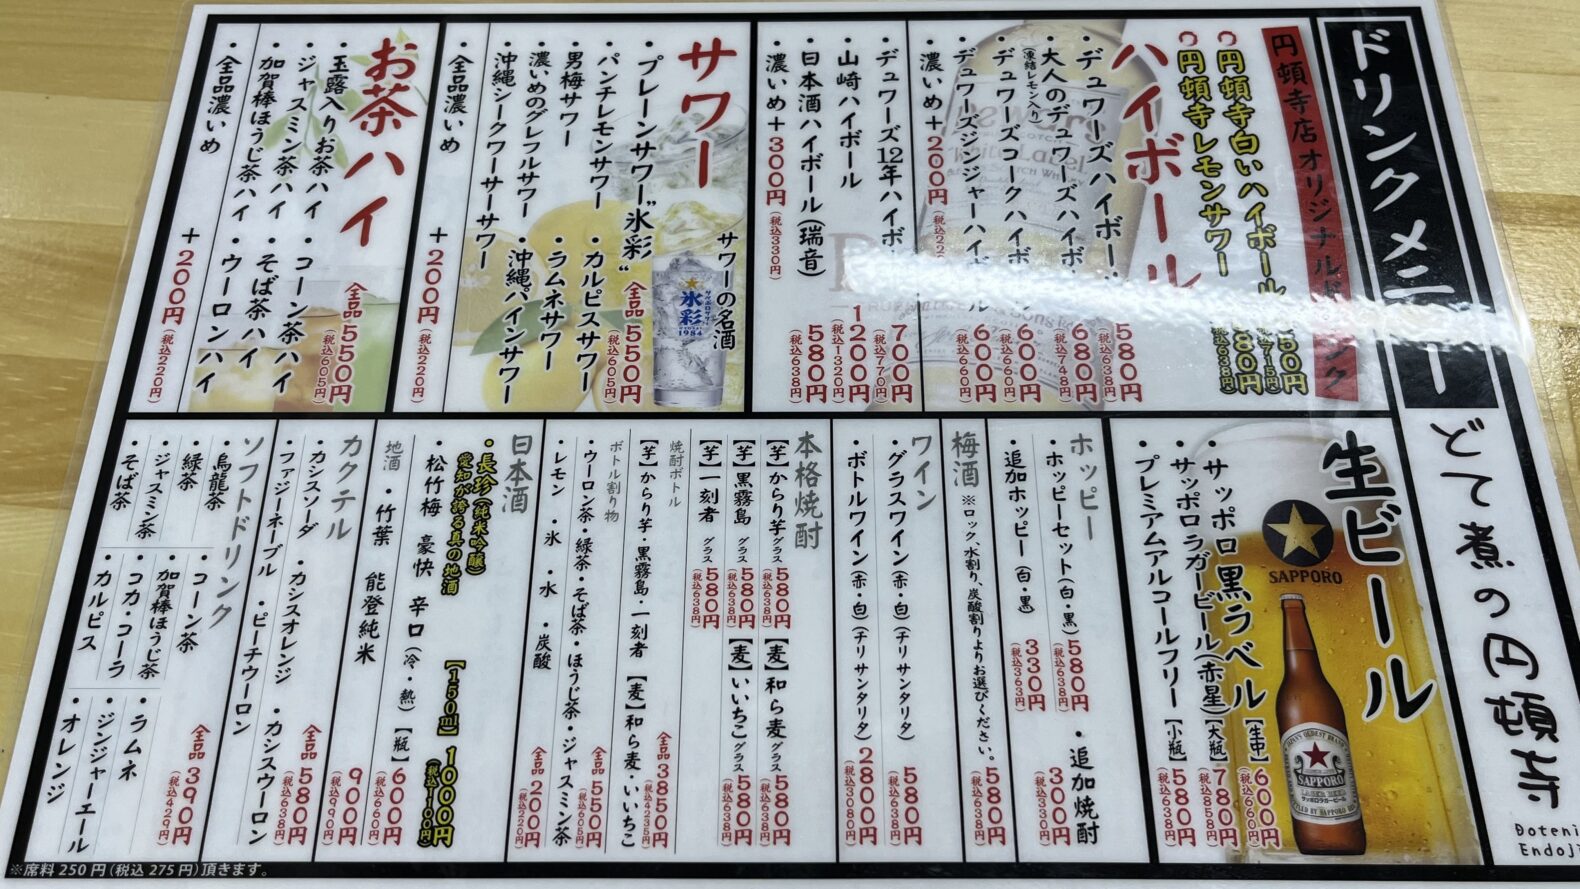 ドリンクメニュー
どて煮の円頓寺
Doteni
円頓寺店オリジナルドリンク
円頓寺白いハイボール
円頓寺レモンサワー 580円(税込638円)
ハイボール
・デュワーズハイボール 580円(税込638円)
・大人のデュワーズハイボール(凍結レモン入り) 680円(税込748円)
・デュワーズコークハイボール 600円(税込660円)
・デュワーズジンジャーハイボール 600円(税込660円)
・濃いめ+200円
・デュワーズ12年ハイボール 700円(税込770円)
・山崎ハイボール 1200円(税込1320円)
・日本酒ハイボール(瑞音) 580円(税込638円)
・濃いめ+300円(税込330円)
サワー 全品550円(税込605円)
サワーの名酒
サッポロサワー
氷彩
1984
・プレーンサワー"氷彩"
・パンチレモンサワー ・カルピスサワー
・男梅サワー ・ラムネサワー
・濃いめのグレフルサワー ・沖縄パインサワー
・沖縄シークワーサーサワー
・全品濃いめ +200円(税込220円)
お茶ハイ 全品550円(税込605円)
・玉露入りお茶ハイ ・コーン茶ハイ
・ジャスミン茶ハイ ・そば茶ハイ
・加賀棒ほうじ茶ハイ ・ウーロンハイ
・全品濃いめ +200円(税込220円)
生ビール
SAPPORO
・サッポロ黒ラベル【生中】600円(税込660円)
・サッポロラガービール(赤星)【大瓶】780円(税込858円)
・プレミアムアルコールフリー【小瓶】580円(税込638円)
ホッピー
・ホッピーセット(白・黒) 580円(税込638円) ・追加焼酎 300円(税込330円)
・追加ホッピー(白・黒) 330円(税込363円)
梅酒 ※ロック、水割り、炭酸割りよりお選びください。 580円(税込638円)
ワイン
・グラスワイン(赤・白)(チリ サンタリタ) 580円(税込638円)
・ボトルワイン(赤・白)(チリ サンタリタ) 2800円(税込3080円)
本格焼酎
【芋】からり芋 グラス580円(税込638円) 【麦】和ら麦 グラス580円(税込638円)
【芋】黒霧島 グラス580円(税込638円) 【麦】いいちこ グラス580円(税込638円)
【芋】一刻者 グラス580円(税込638円)
焼酎ボトル 全品3850円(税込4235円)
【芋】からり芋・黒霧島・一刻者 【麦】和ら麦・いいちこ
ボトル割り物 全品550円(税込605円)
・ウーロン茶・緑茶・そば茶・ほうじ茶・ジャスミン茶
・レモン ・氷 ・水 ・炭酸 全品200円(税込220円)
日本酒
・長珍(純米吟醸)
愛知が誇る真の地酒 【150ml】1000円(税込1100円)
・松竹梅 豪快 辛口(冷・熱)【瓶】600円(税込660円)
地酒 ・竹葉 能登純米 900円(税込990円)
カクテル 全品580円(税込638円)
・カシスソーダ ・カシスオレンジ ・カシスウーロン
・ファジーネーブル ・ピーチウーロン
ソフトドリンク 全品390円(税込429円)
・烏龍茶
・緑茶
・ジャスミン茶
・そば茶
・コーン茶
・加賀棒ほうじ茶
・コカ・コーラ
・カルピス
・ラムネ
・ジンジャーエール
・オレンジ
※席料250円(税込275円)頂きます。